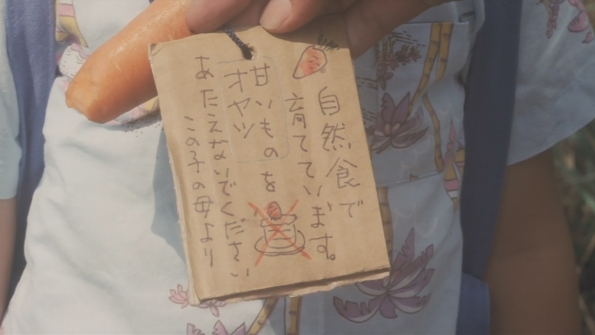 自然食で
育てています。
甘いものを
オヤツ
あたえないでください
この子の母より